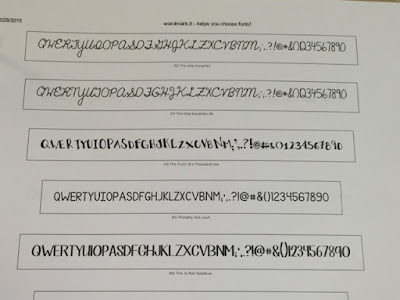 2/28/2015 wordmark.it - helps you choose fonts!
QWERTYUIOPASDFGHJKLZXCVBNM;:,.?!@*&()1234567890
KG The Only Exception
QWERTYUIOPASDFGHJKLZXCVBNM;:,.?!@*&()1234567890
KG The Only Exception Alt
QWERTYUIOPASDFGHJKLZXCVBNM;:,.?!@#&()1234567890
KG The Fault of a Thousand
QWERTYUIOPASDFGHJKLZXCVBNM;:,.?!@#&()1234567890
KG Thinking Out Loud
QWERTYUIOPASDFGHJKLZXCVBNM;:,.?!@#&()1234567890
KG This Is Not Goodbye